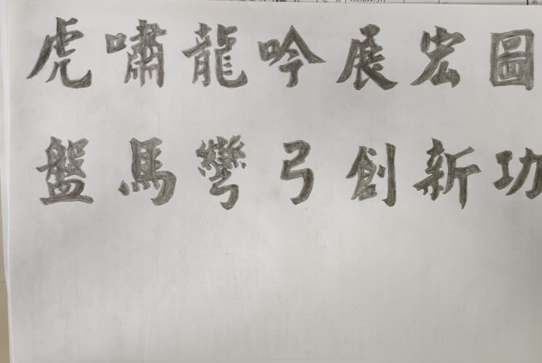 虎嘯龍吟展宏圖
盤馬彎弓創新功